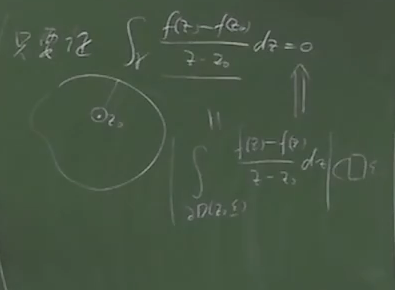 只要证 ∫_γ (f(z)-f(z₀))/(z-z₀) dz = 0
z₀
| ∫_{∂D(z₀,ε)} (f(z)-f(z₀))/(z-z₀) dz |